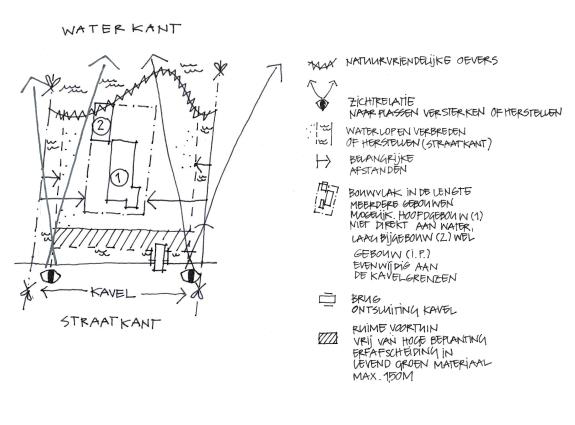 WATERKANT
2
1
KAVEL
STRAATKANT
NATUURVRIENDELIJKE OEVERS
ZICHTRELATIE
NAAR PLASSEN VERSTERKEN OF HERSTELLEN
WATERLOPEN VERBREDEN
OF HERSTELLEN (STRAATKANT)
BELANGRIJKE
AFSTANDEN
BOUWVLAK IN DE LENGTE
MEERDERE GEBOUWEN
MOGELIJK. HOOFDGEBOUW (1)
NIET DIREKT AAN WATER,
LAAG BIJGEBOUW (2) WEL
GEBOUW (I.P.)
EVENWIJDIG AAN
DE KAVELGRENZEN
BRUG
ONTSLUITING KAVEL
RUIME VOORTUIN
VRIJ VAN HOGE BEPLANTING
ERFAFSCHEIDING IN
LEVEND GROEN MATERIAAL
MAX. 1.50M